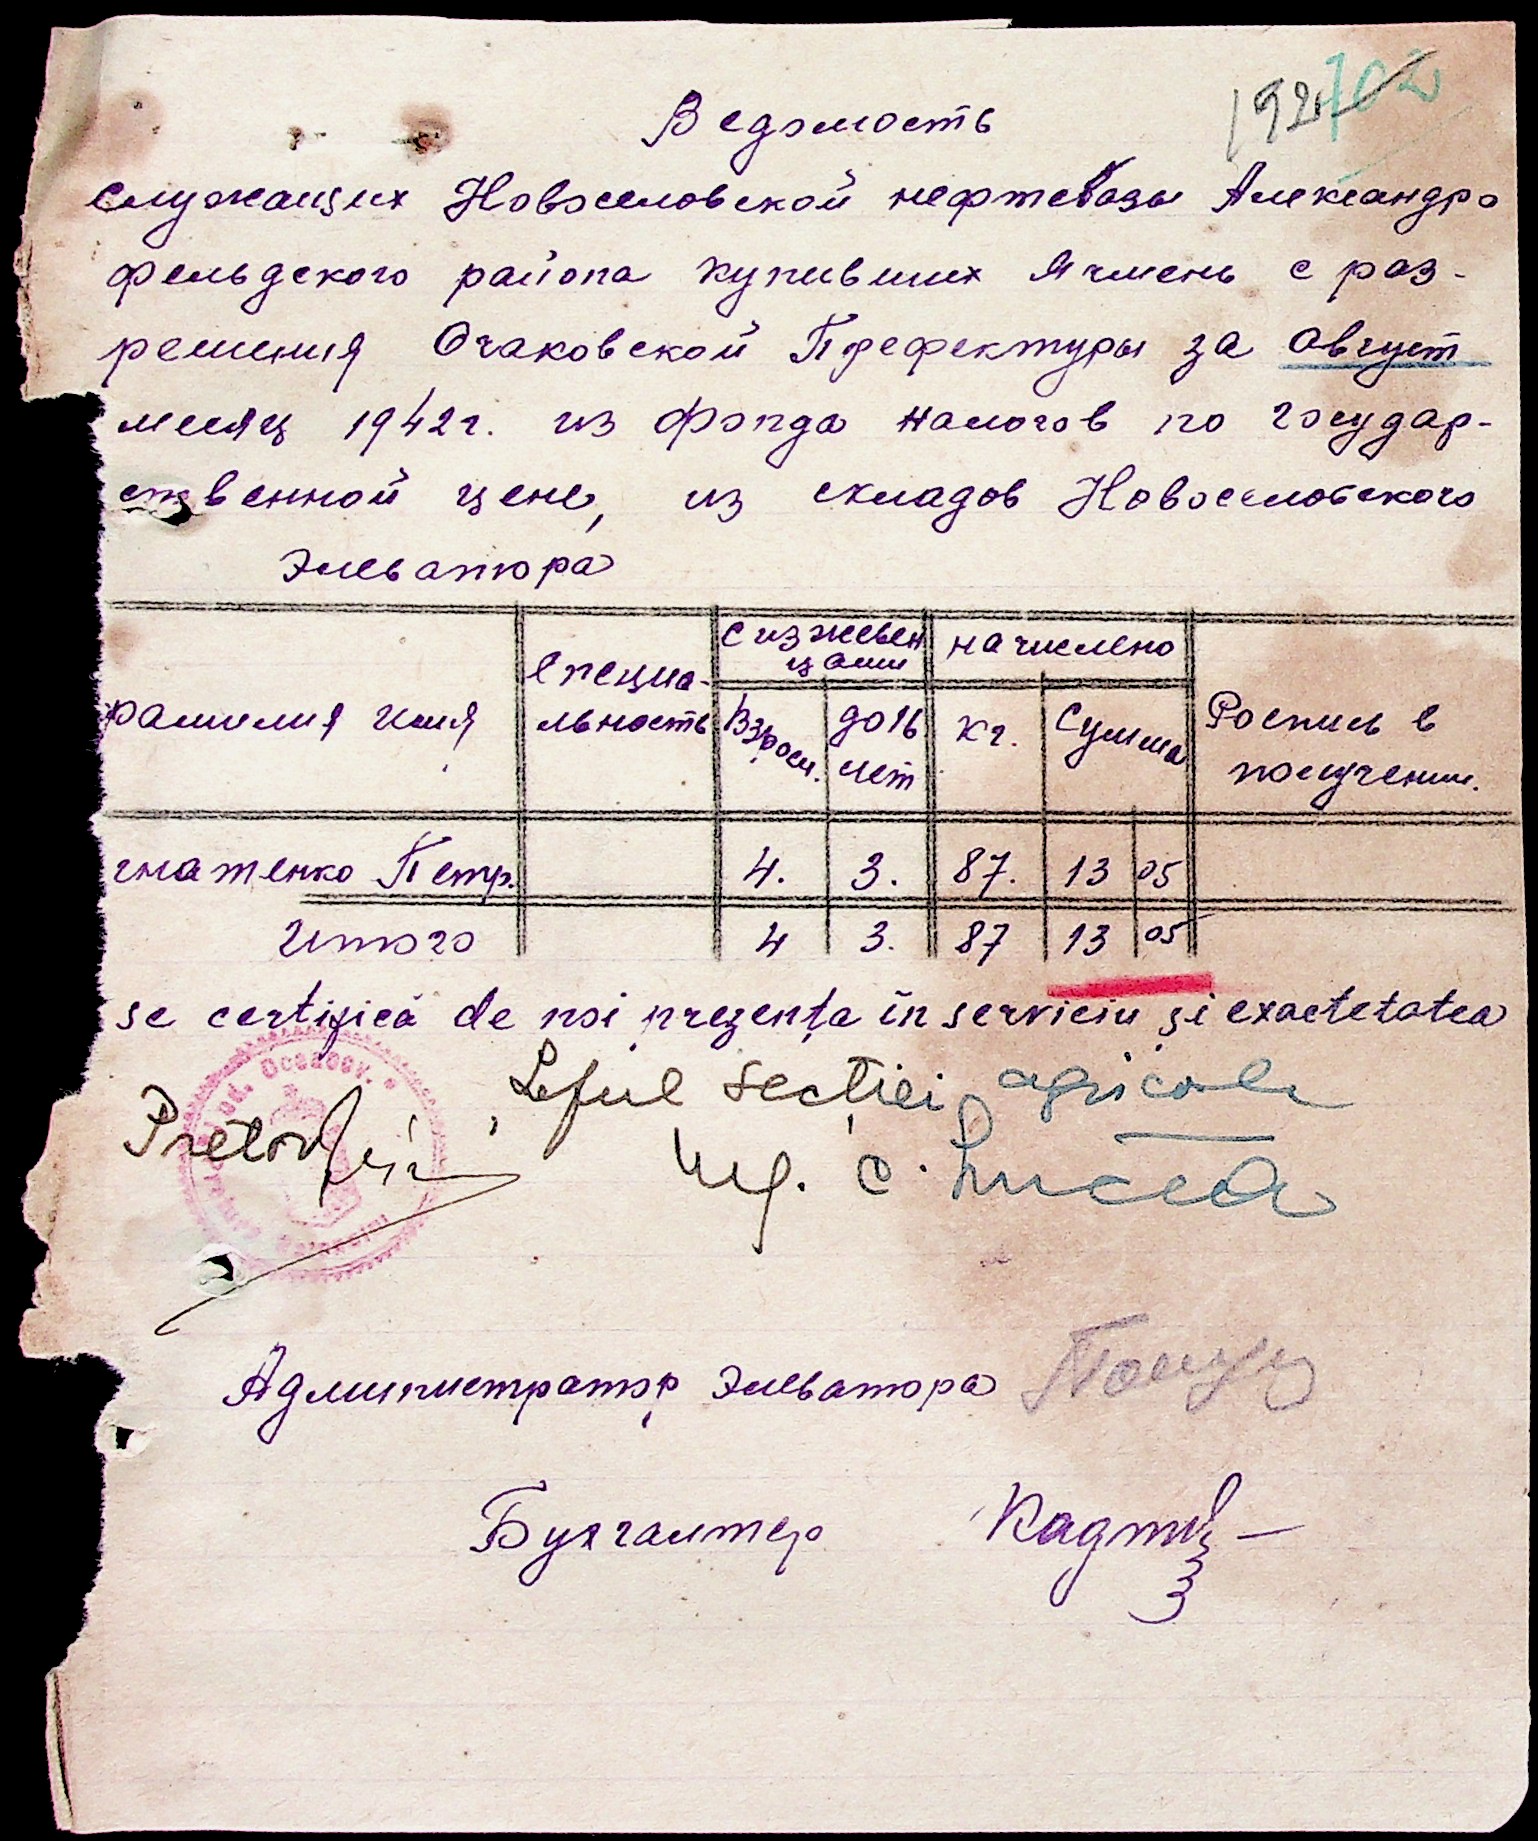 192 702
Ведомость
служащих Новоселовской нефтебазы Александро
фельдского района купивших Ячмень с раз-
решения Очаковской Префектуры за август
месяц 1942г. из фонда налогов по государ-
ственной цене, из складов Новоселовского
Элеватора
фамилия имя | специа-льность | с изжевенцами | начислено | Роспись в получении.
Взросл. | до 16 лет | кг. | Сумма
гнатенко Петр. | 4. | 3. | 87. | 13 | 05
Итого | 4 | 3. | 87 | 13 | 05
se certifică de noi prezența în serviciu și exactetatea
Șeful secției agricole
Pretor
Ing. C.
Администратор Элеватора
Бухгалтер